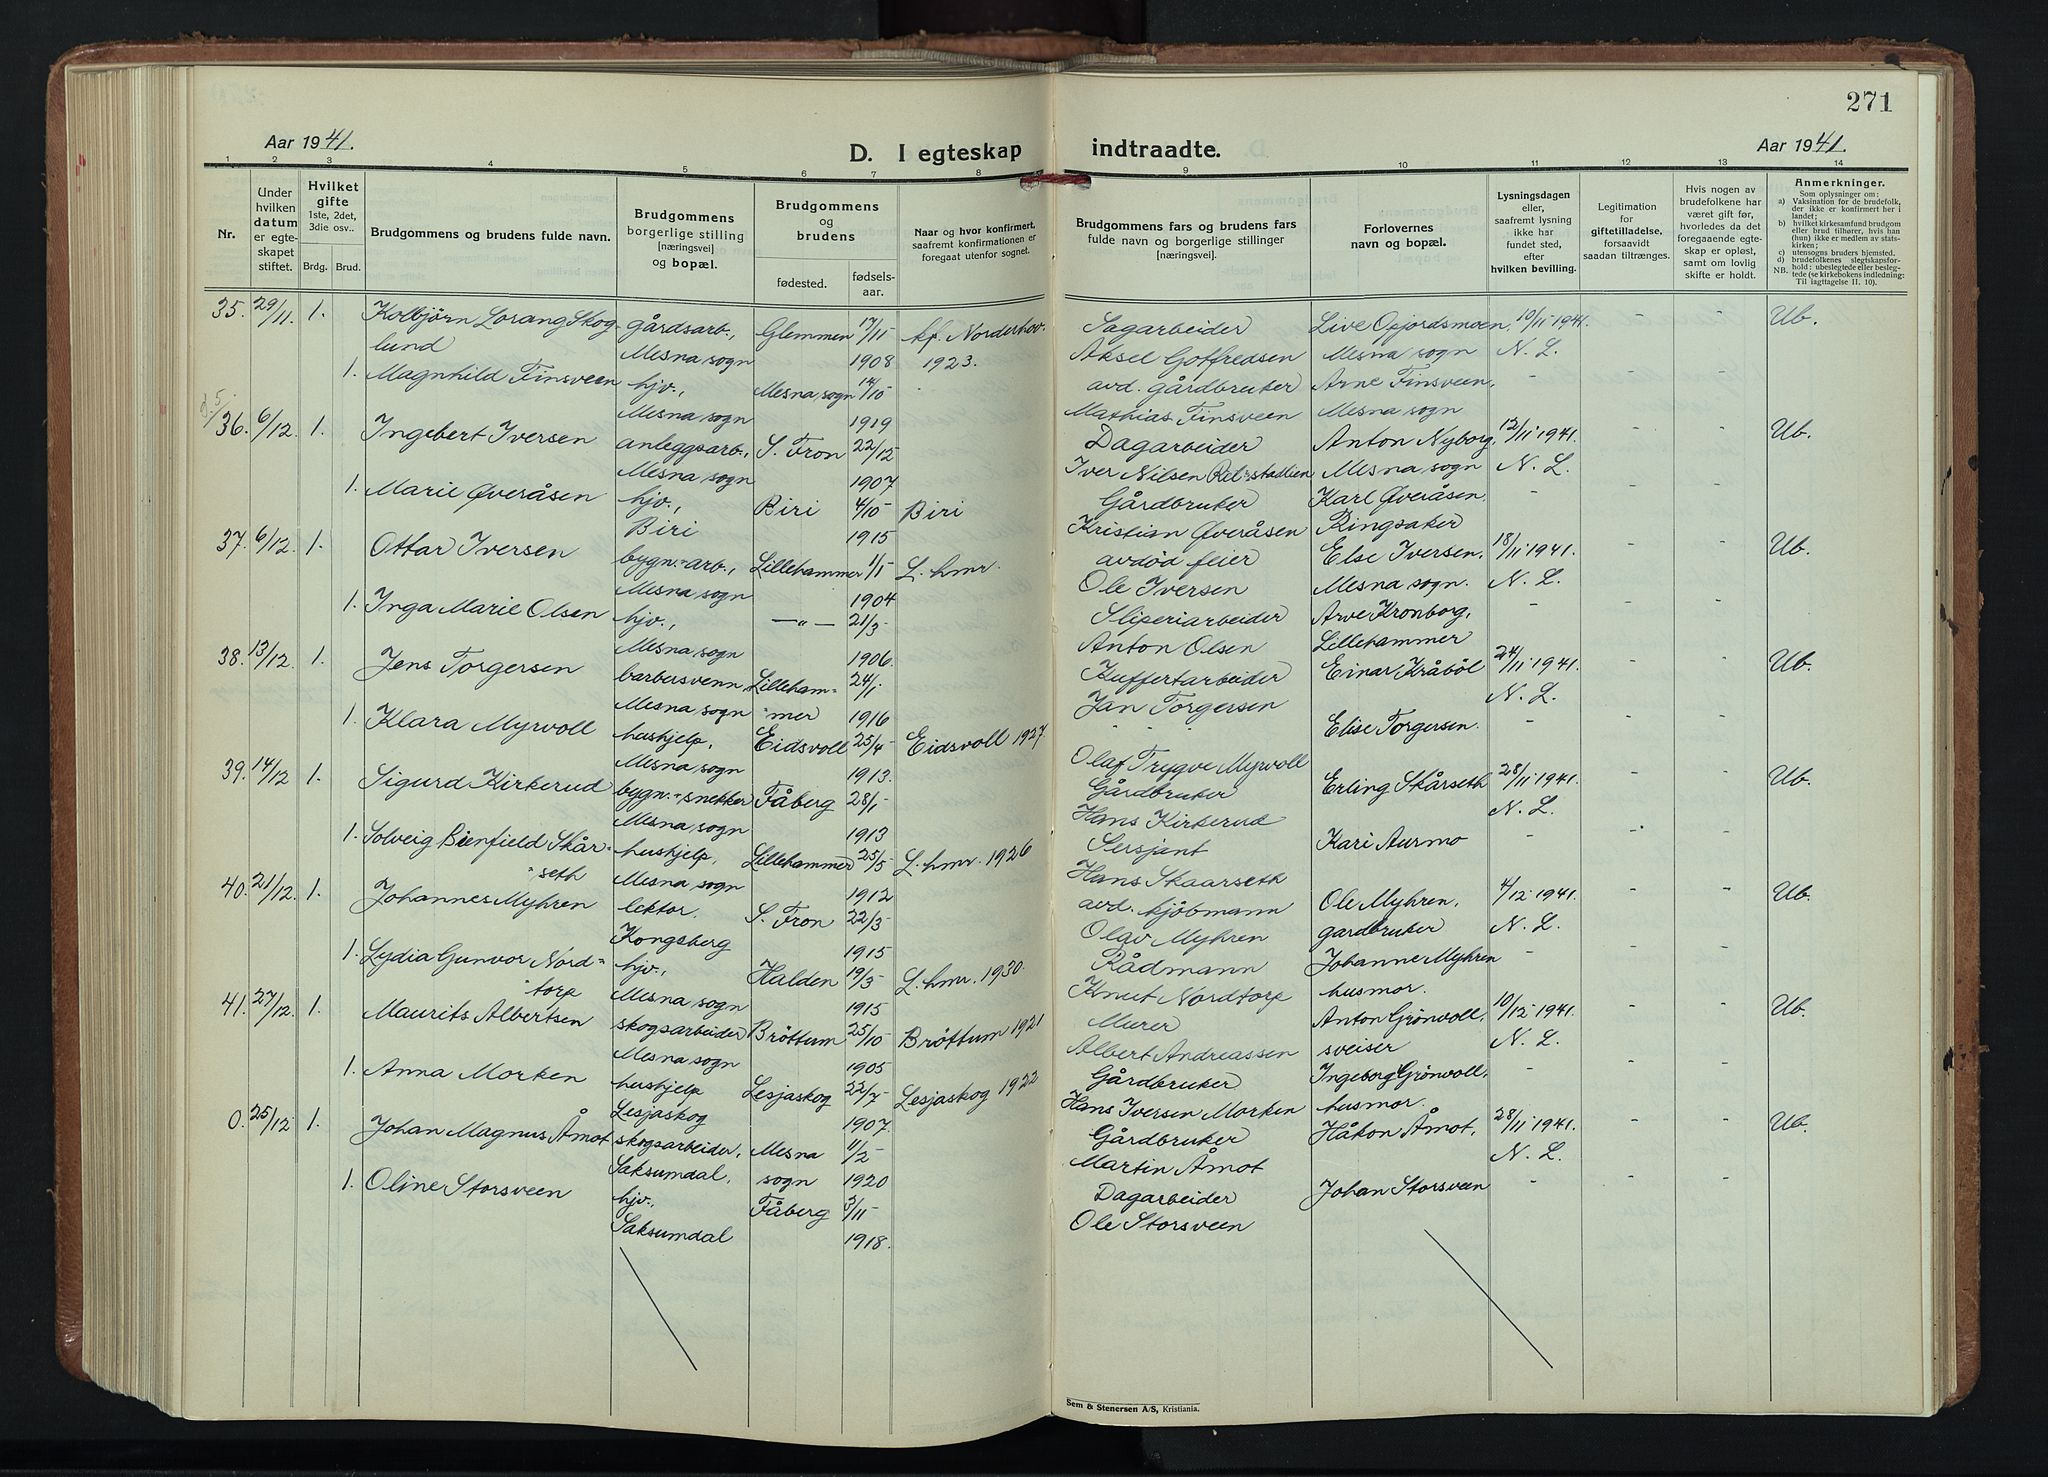 271
Aar 1941. D. I egteskap indtraadte. Aar 1941.
1 2 3 4 5 6 7 8 9 10 11 12 13 14
Nr.
Under hvilken datum er egteskapet stiftet.
Hvilket gifte 1ste, 2det, 3die osv.. Brdg. Brud.
Brudgommens og brudens fulde navn.
Brudgommens borgerlige stilling [næringsvei] og bopæl.
Brudgommens og brudens fødested. fødsels-aar.
Naar og hvor konfirmert, saafremt konfirmationen er foregaat utenfor sognet.
Brudgommens fars og brudens fars fulde navn og borgerlige stillinger [næringsvei].
Forlovernes navn og bopæl.
Lysningsdagen eller, saafremt lysning ikke har fundet sted, efter hvilken bevilling.
Legitimation for giftetilladelse, forsaavidt saadan tiltrænges.
Hvis nogen av brudefolkene har været gift før, hvorledes da det foregaaende egteskap er opløst, samt om lovlig skifte er holdt.
Anmerkninger.
Som oplysninger om:
a) Vaksination for de brudefolk, der ikke er konfirmert her i landet;
b) hvilket kirkesamfund brudgom eller brud tilhører, hvis han (hun) ikke er medlem av statskirken;
c) utensogns bruders hjemsted.
d) brudefolkenes slegtskapsforhold: ubeslegtede eller beslegtede (se kirkebokens indledning: Til iagttagelse II. 10).
NB.
35. 29/11. 1. Kolbjörn Lorang Skoglund gårdsarb., Mesna sogn Glemmen 17/11 1908 kf. Norderhov 1923. Sagarbeider Aksel Gotfredsen Live Opjordsmoen, Mesna sogn 10/11 1941. N. L. - - Ub.
1. Magnhild Finsveen hjv., Mesna sogn Mesna sogn 14/10 1919 avd. gårdbruker Mathias Finsveen Arne Finsveen, Mesna sogn -
36. 6/12. 1. Ingebert Iversen anleggsarb., Mesna sogn S. Fron 22/12 1907 Dagarbeider Iver Nilsen Anton Nyborg, Mesna sogn 12/11 1941. N. L. - - Ub.
1. Marie Øveråsen hjv., Biri Biri 4/10 1915 Biri Gårdbruker Kristian Øveråsen Karl Øveråsen Ringsaker -
37. 6/12. 1. Ottar Iversen bygn.-arb., Mesna sogn Lillehammer 1/1 1904 L. hmr. avdød feier Ole Iversen Else Iversen, Mesna sogn. 18/11 1941. N. L. - - Ub.
1. Inga Marie Olsen hjv., Mesna sogn —"— 21/3 1906. Sliperiarbeider Anton Olsen Arve Kronborg, Lillehammer -
38. 13/12. 1. Jens Torgersen barbersvenn, Mesna sogn Lillehammer 24/1 1916 Kuffertarbeider Jan Torgersen Einar Kråböl 24/11 1941. N. L. - - Ub.
1. Klara Myrvoll hushjelp, Mesna sogn Eidsvoll 25/4 1913. Eidsvoll 1927 Olaf Trygve Myrvoll Elise Torgersen. -
39. 14/12 1. Sigurd Kirkerud bygn.-snekker Mesna sogn Fåberg 28/1 1913 Gårdbruker Hans Kirkerud Erling Skårseth 28/11 1941. N. L. - - Ub.
1. Solveig Bienfield Skårseth hushjelp, Mesna sogn Lillehammer 25/5 1912 L. hmr. 1926 Sersjant Hans Skaarseth Kari Aurmo -
40. 21/12. 1. Johannes Myhren lektor. Kongsberg S. Fron 22/3 1915 avd. kjöbmann Olav Myhren Ole Myhren, gardbruker 4/12 1941. N. L. - - Ub.
1. Lydia Gunvor Nordtorp hjv., Mesna sogn Halden 19/3 1915 L. hmr. 1930. Rådmann Knut Nordtorp Johanne Myhren husmor. -
41. 27/12. 1. Maurits Albertsen skogsarbeider Mesna sogn Bröttum 25/10 1905 Bröttum 1921 Murer Albert Andreassen Anton Grönvoll, sveiser 10/12 1941. N. L. - - Ub.
1. Anna Morken hushjelp Lesjaskog Lesjaskog 22/7 1907. Lesjaskog 1922 Gårdbruker Hans Iversen Morken Ingeborg Grönvoll, husmor. -
0. 25/12 1. Johan Magnus Åmot skogsarbeider, Saksumdal, Mesna sogn 11/2 1920 Gårdbruker Martin Åmot Håkon Åmot, 28/11 1941. N. L. - - Ub.
1. Oline Storsveen hjv., Saksumdal Fåberg 3/11 1918. Dagarbeider Ole Storsveen Johan Storsveen -
Sem & Stenersen A/S, Kristiania.